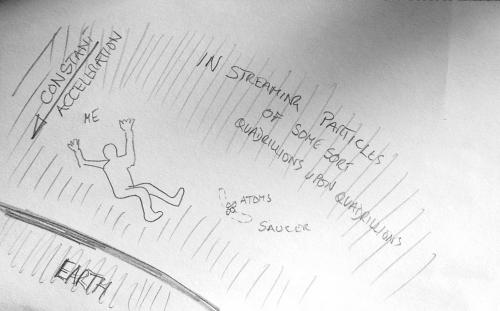 CONSTANT
ACCELERATION
IN STREAMING PARTICLES
OF SOME SORT
QUADRILLIONS UPON QUADRILLIONS
ME
ATOMS
SAUCER
EARTH